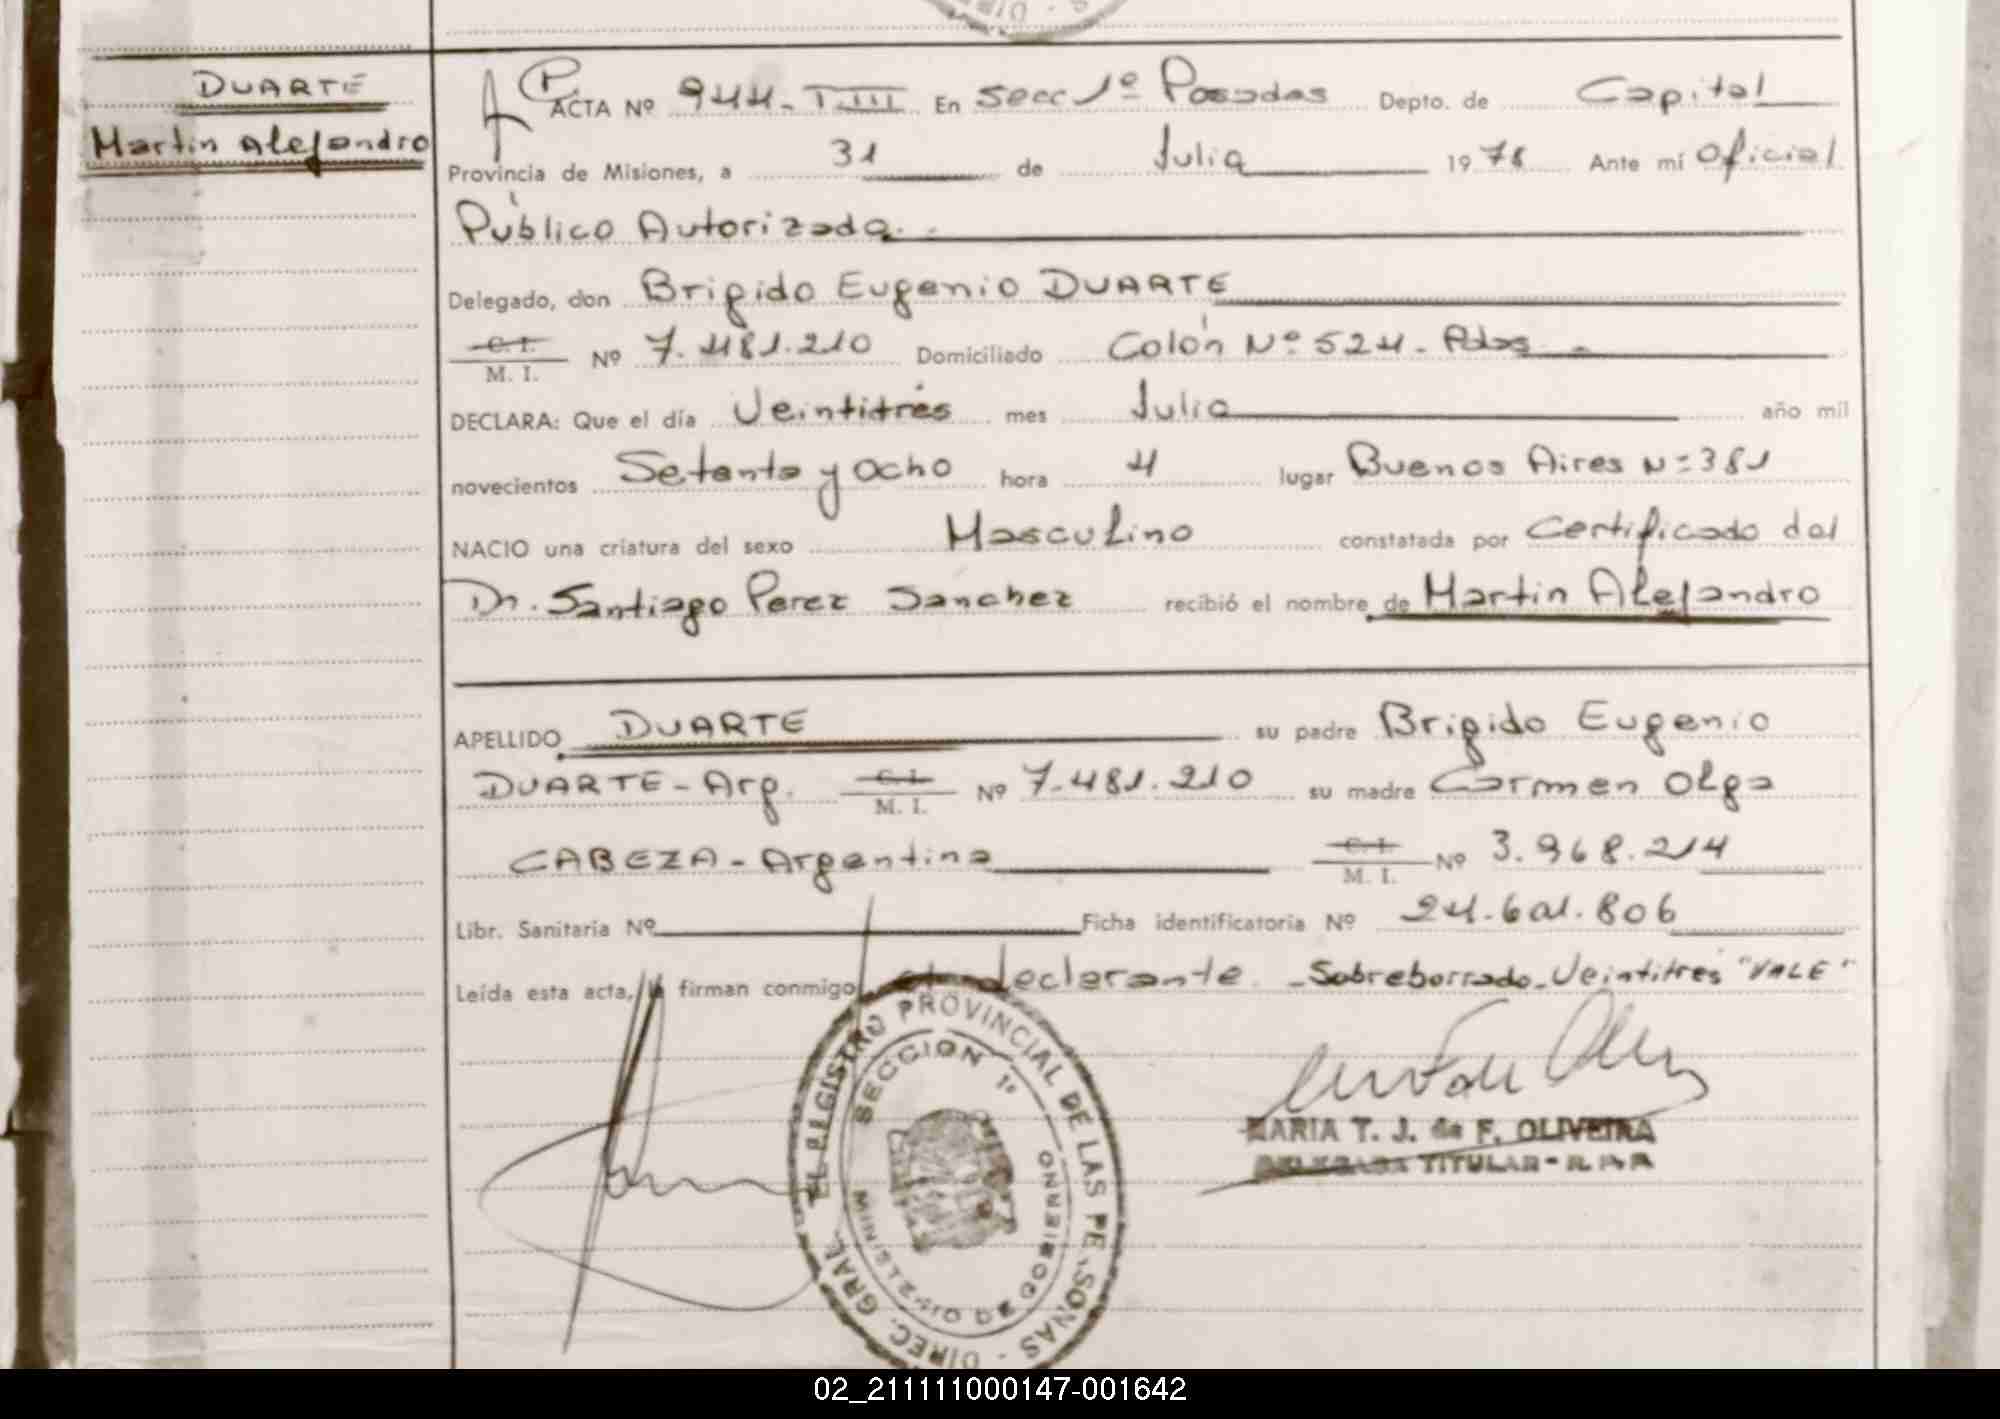 DUARTE
Martin Alejandro
P.
ACTA Nº 944-T.III En Secc 1º Posadas Depto. de Capital
Provincia de Misiones, a 31 de Julio 1978 Ante mí Oficial
Público Autorizado.-
Delegado, don Brigido Eugenio DUARTE
C. I. M. I. Nº 7.481.210 Domiciliado Colón Nº 524. Pdas -
DECLARA: Que el día Veintitrés mes Julio año mil
novecientos Setenta y ocho hora 4 lugar Buenos Aires Nº 381
NACIO una criatura del sexo Masculino constatada por Certificado del
Dr. Santiago Perez Sanchez recibió el nombre de Martin Alejandro
APELLIDO DUARTE su padre Brigido Eugenio
DUARTE - Arg. C. I. M. I. Nº 7.481.210 su madre Carmen Olga
CABEZA - Argentina C. I. M. I. Nº 3.968.214
Libr. Sanitaria Nº Ficha identificatoria Nº 24.601.806
Leída esta acta, la firman conmigo el declarante. - Sobreborrado - Veintitrés "VALE"
DIREC. GRAL. DEL REGISTRO PROVINCIAL DE LAS PERSONAS -
SECCION 1º
MINISTERIO DE GOBIERNO
MARIA T. J. de F. OLIVEIRA
DELEGADA TITULAR - R.P.P.
02_211111000147-001642